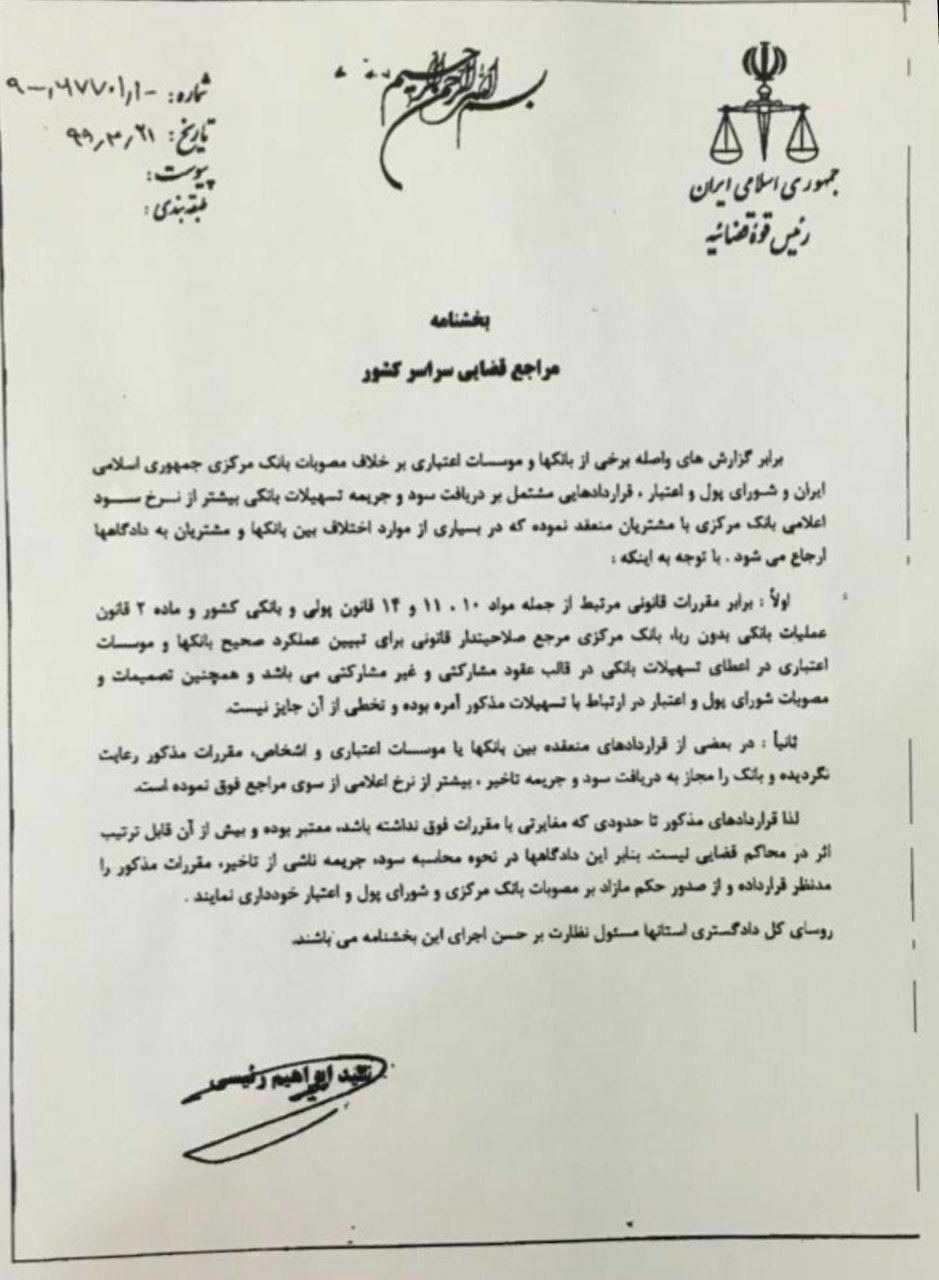 بسم الله الرحمن الرحیم
جمهوری اسلامی ایران
رئیس قوهٔ قضائیه
شماره: ۹۰۰۰/۶۷۷۰۱/۱۰۰
تاریخ: ۹۹/۳/۲۱
پیوست:
طبقه‌بندی:
بخشنامه
مراجع قضایی سراسر کشور
برابر گزارش های واصله برخی از بانکها و موسسات اعتباری بر خلاف مصوبات بانک مرکزی جمهوری اسلامی
ایران و شورای پول و اعتبار ، قراردادهایی مشتمل بر دریافت سود و جریمه تسهیلات بانکی بیشتر از نرخ سود
اعلامی بانک مرکزی با مشتریان منعقد نموده که در بسیاری از موارد اختلاف بین بانکها و مشتریان به دادگاهها
ارجاع می شود . با توجه به اینکه :
اولاً : برابر مقررات قانونی مرتبط از جمله مواد ۱۰ ، ۱۱ و ۱۴ قانون پولی و بانکی کشور و ماده ۲ قانون
عملیات بانکی بدون ربا، بانک مرکزی مرجع صلاحیتدار قانونی برای تبیین عملکرد صحیح بانکها و موسسات
اعتباری در اعطای تسهیلات بانکی در قالب عقود مشارکتی و غیر مشارکتی می باشد و همچنین تصمیمات و
مصوبات شورای پول و اعتبار در ارتباط با تسهیلات مذکور آمره بوده و تخطی از آن جایز نیست.
ثانیاً : در بعضی از قراردادهای منعقده بین بانکها یا موسسات اعتباری و اشخاص، مقررات مذکور رعایت
نگردیده و بانک را مجاز به دریافت سود و جریمه تاخیر ، بیشتر از نرخ اعلامی از سوی مراجع فوق نموده است.
لذا قراردادهای مذکور تا حدودی که مغایرتی با مقررات فوق نداشته باشد، معتبر بوده و بیش از آن قابل ترتیب
اثر در محاکم قضایی نیست. بنابر این دادگاهها در نحوه محاسبه سود، جریمه ناشی از تاخیر، مقررات مذکور را
مدنظر قرارداده و از صدور حکم مازاد بر مصوبات بانک مرکزی و شورای پول و اعتبار خودداری نمایند .
روسای کل دادگستری استانها مسئول نظارت بر حسن اجرای این بخشنامه می باشند.
سید ابراهیم رئیسی